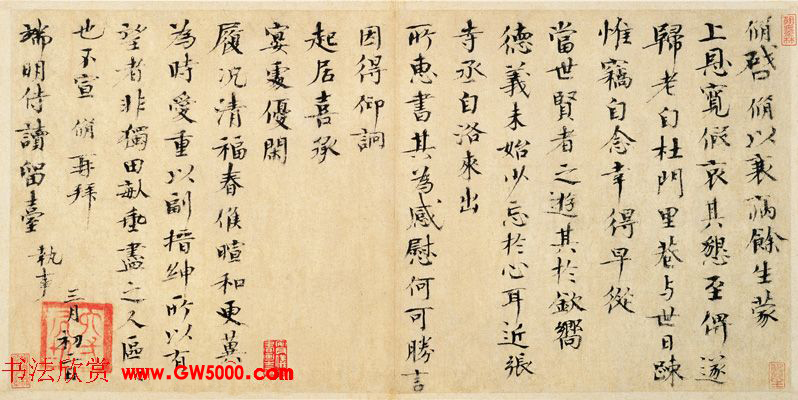 脩啟脩以衰病餘生蒙
上恩寬假哀其懇至俾遂
歸老自杜門里巷与世日踈
惟竊自念幸得早從
當世賢者之遊其於欽嚮
德義未始少忘於心耳近張
寺丞自洛來出
所惠書其為感慰何可勝言
因得仰詗
起居喜承
宴處優閑
履況清福春候暄和更冀
為時愛重以副搢紳所以有
望者非獨田畝垂盡之人區區
也不宣 脩再拜
端明侍讀留臺 執事 三月初二日
书法欣赏 www.GW5000.com